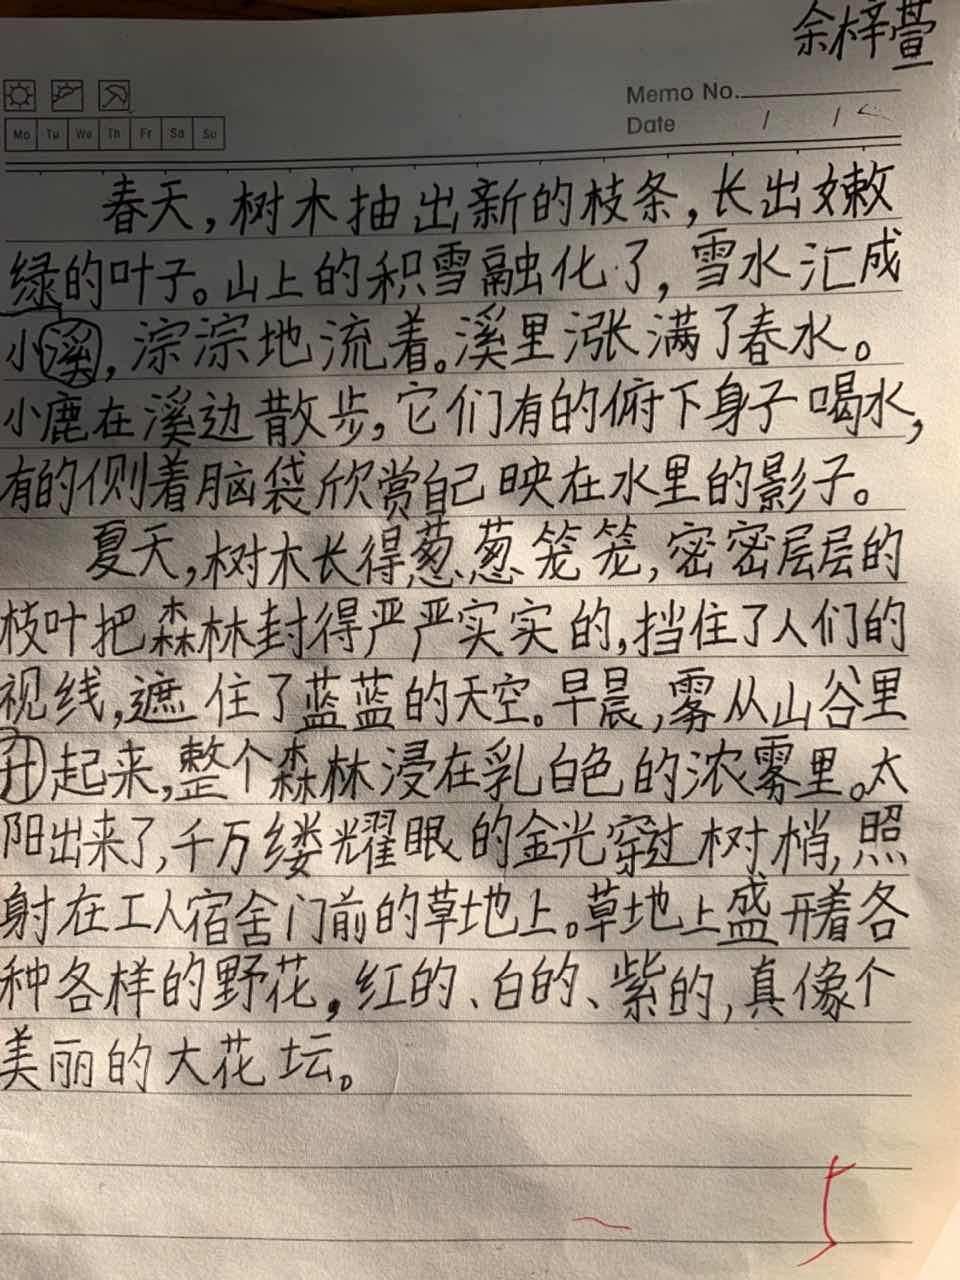 余梓萱
Memo No.
Mo Tu We Th Fr Sa Su
Date / /
春天,树木抽出新的枝条,长出嫩
绿的叶子。山上的积雪融化了,雪水汇成
小溪,淙淙地流着。溪里涨满了春水。
小鹿在溪边散步,它们有的俯下身子喝水,
有的侧着脑袋欣赏自己映在水里的影子。
夏天,树木长得葱葱笼笼,密密层层的
枝叶把森林封得严严实实的,挡住了人们的
视线,遮住了蓝蓝的天空。早晨,雾从山谷里
升起来,整个森林浸在乳白色的浓雾里。太
阳出来了,千万缕耀眼的金光穿过树梢,照
射在工人宿舍门前的草地上。草地上盛开着各
种各样的野花,红的、白的、紫的,真像个
美丽的大花坛。